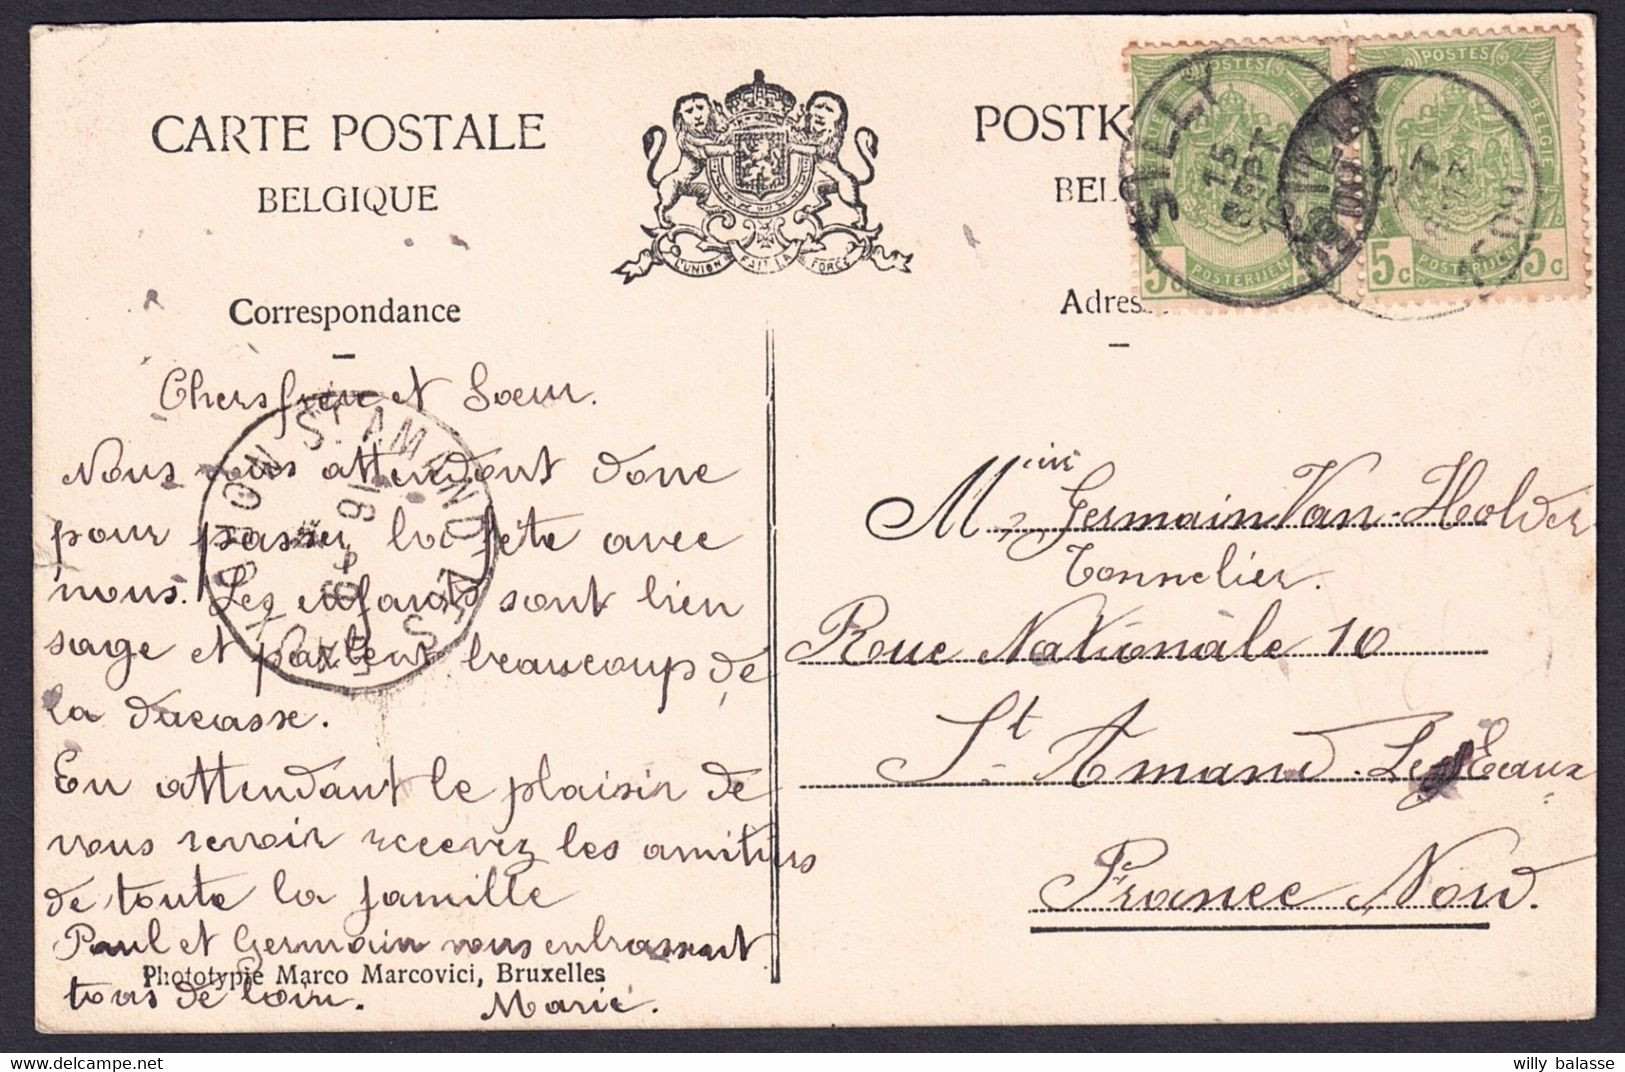 CARTE POSTALE
BELGIQUE
L'UNION FAIT LA FORCE
POSTK
BELG
POSTES
POSTES
BELGIE
5 c
POSTERIJEN
5 c
POSTERIJEN
5 c
SILLY
15
SEPT
SILLY
SEPT
Correspondance
Adres
Chers frère et Soeur.
Nous vous attendont donc
pour passer la fête avec
nous. Les enfants sont bien
sage et parlent beaucoup de
la ducasse.
En attendant le plaisir de
vous revoir recevez les amitiés
de toute la famille
Paul et Germain vous enbrassent
tous de loin. Marie.
ST AMAND LES EAUX
NORD
16
9
Phototypie Marco Marcovici, Bruxelles
Germain Van-Holder
Tonnelier.
Rue Nationale 10
St Amand-Les Eaux
France Nord.
willy balasse